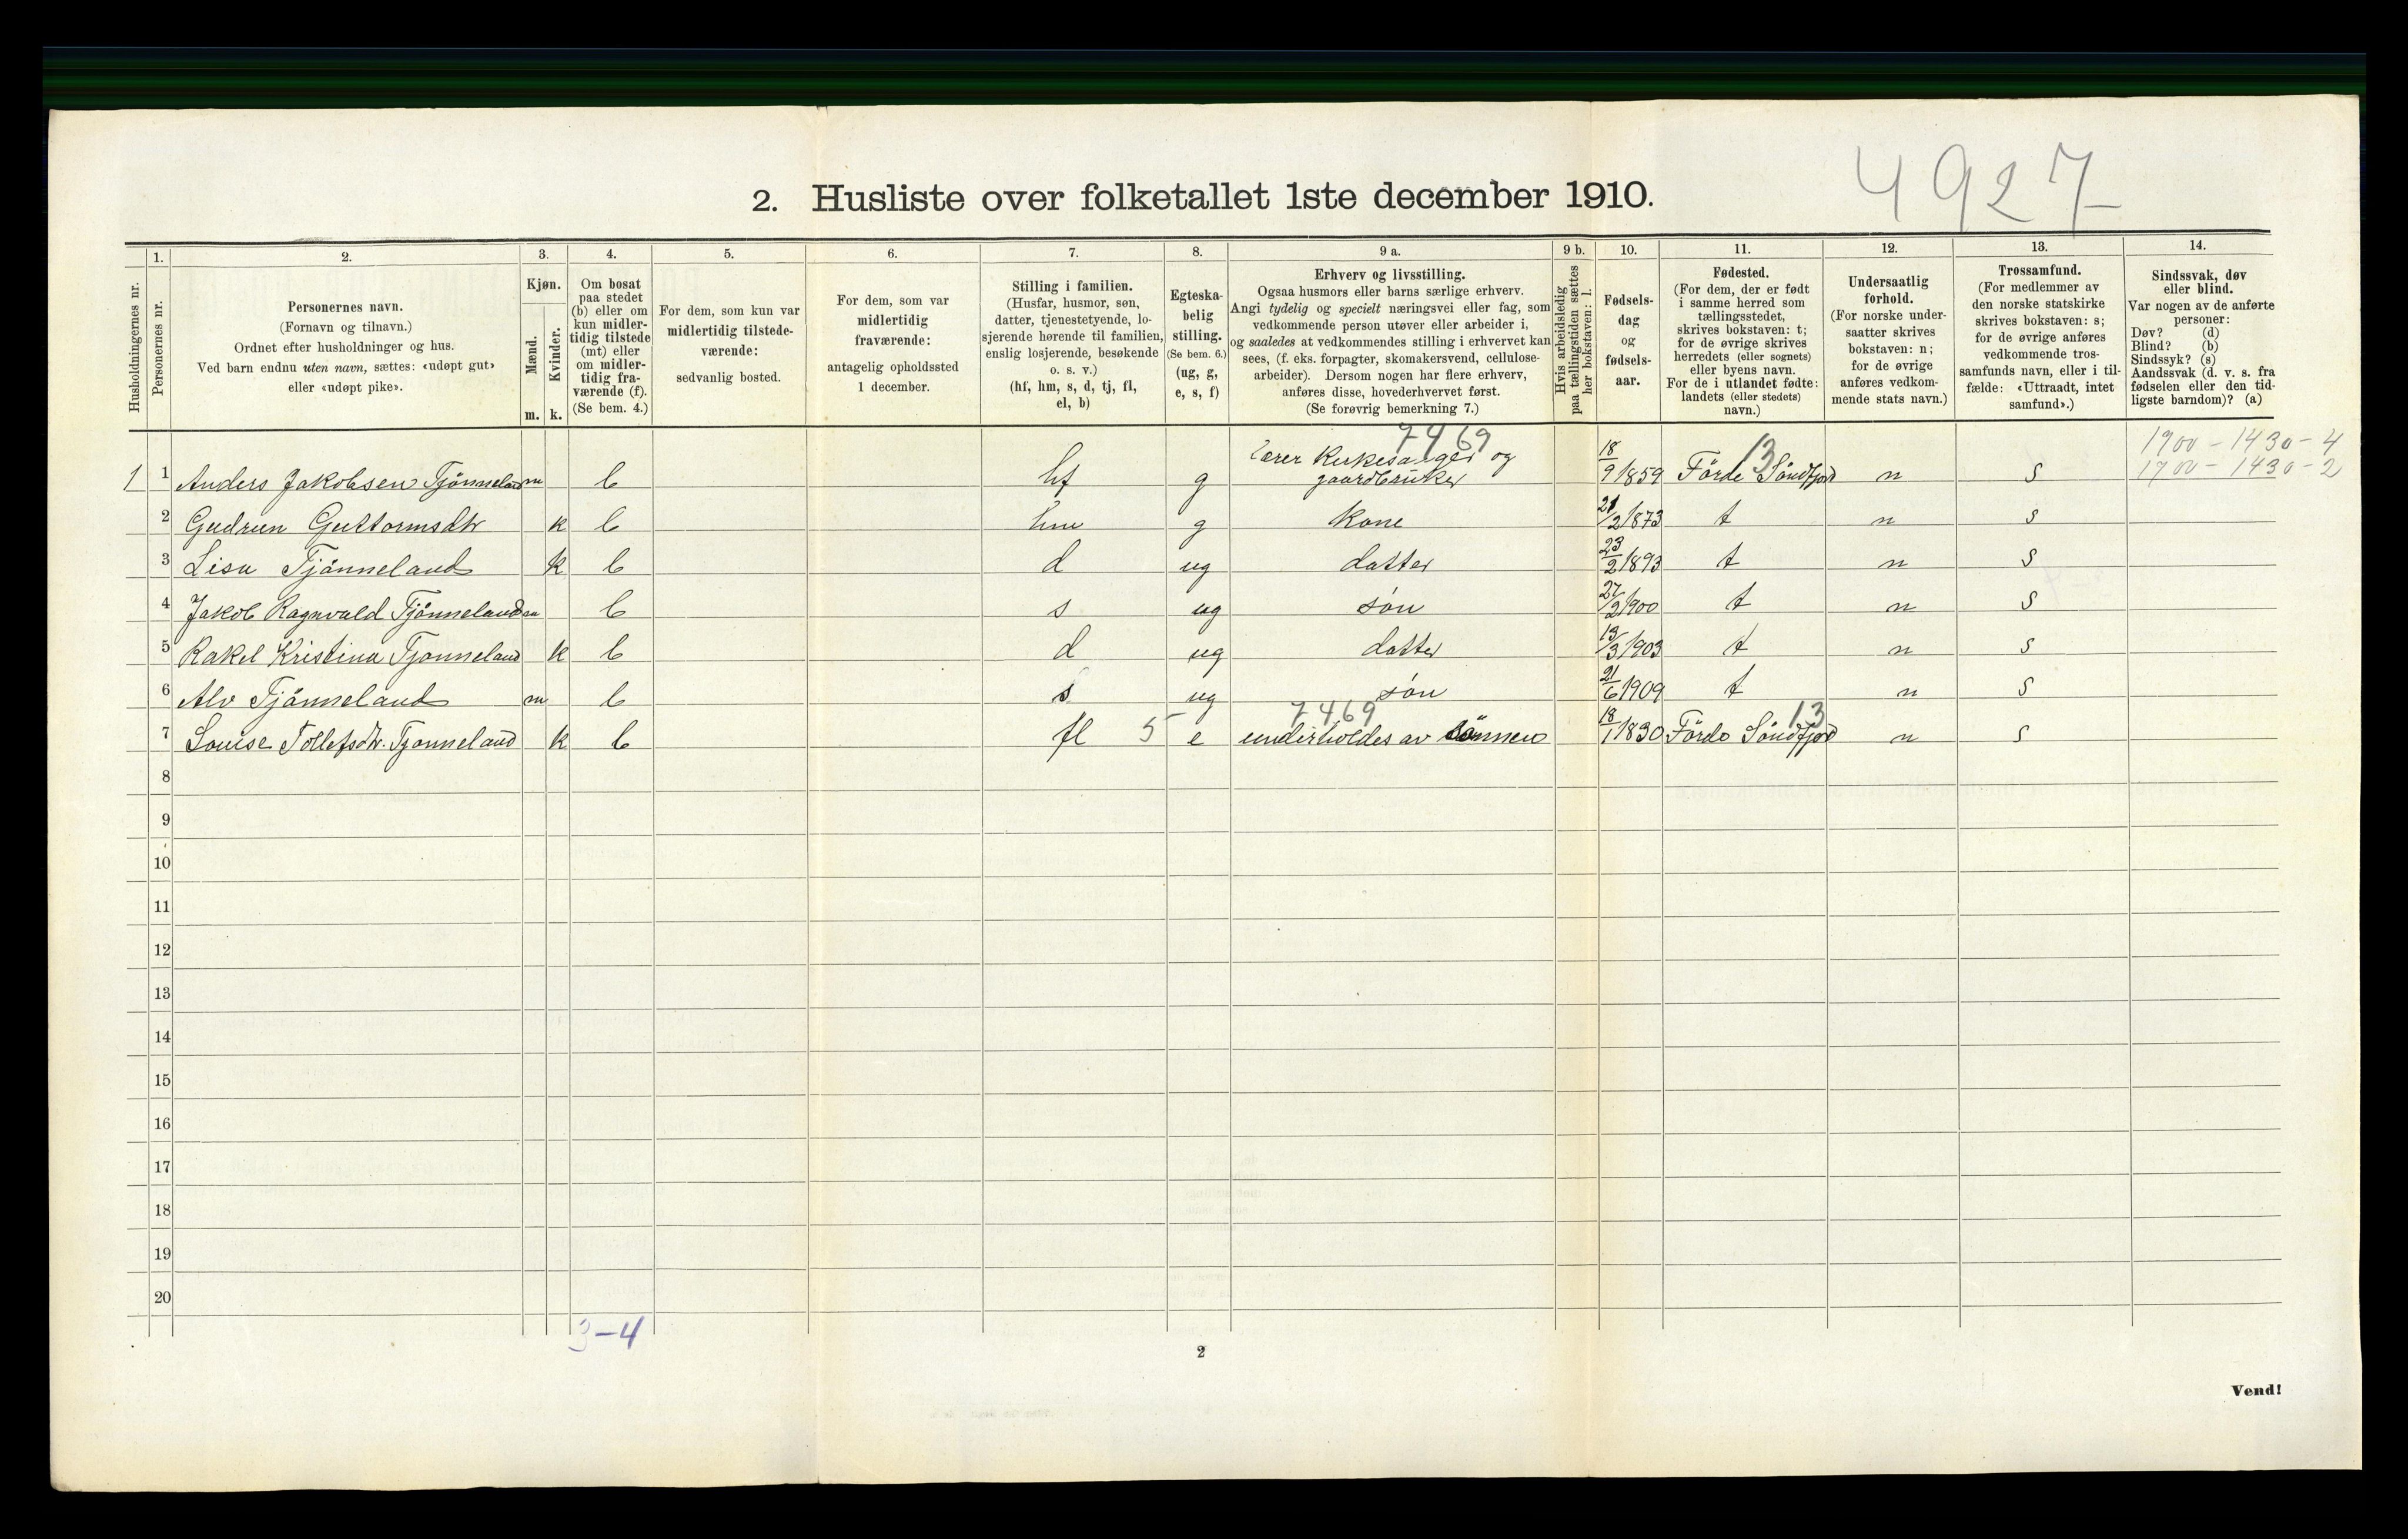 4927
2. Husliste over folketallet 1ste december 1910.
Husholdningernes nr.
1.
Personernes nr.
2.
Personernes navn.
(Fornavn og tilnavn.)
Ordnet efter husholdninger og hus.
Ved barn endnu uten navn, sættes: «udøpt gut»
eller «udøpt pike».
3.
Kjøn.
Mænd.
Kvinder.
m. k.
4.
Om bosat
paa stedet
(b) eller om
kun midler-
tidig tilstede
(mt) eller
om midler-
tidig fra-
værende (f).
(Se bem. 4.)
5.
For dem, som kun var
midlertidig tilstede-
værende:
sedvanlig bosted.
6.
For dem, som var
midlertidig
fraværende:
antagelig opholdssted
1 december.
7.
Stilling i familien.
(Husfar, husmor, søn,
datter, tjenestetyende, lo-
sjerende hørende til familien,
enslig losjerende, besøkende
o. s. v.)
(hf, hm, s, d, tj, fl,
el, b)
8.
Egteska-
belig
stilling.
(Se bem. 6.)
(ug, g,
e, s, f)
9 a.
Erhverv og livsstilling.
Ogsaa husmors eller barns særlige erhverv.
Angi tydelig og specielt næringsvei eller fag, som
vedkommende person utøver eller arbeider i,
og saaledes at vedkommendes stilling i erhvervet kan
sees, (f. eks. forpagter, skomakersvend, cellulose-
arbeider). Dersom nogen har flere erhverv,
anføres disse, hovederhvervet først.
(Se forøvrig bemerkning 7.)
9 b.
Hvis arbeidsledig
paa tællingstiden sættes
her bokstaven: l.
10.
Fødsels-
dag
og
fødsels-
aar.
11.
Fødested.
(For dem, der er født
i samme herred som
tællingsstedet,
skrives bokstaven: t;
for de øvrige skrives
herredets (eller sognets)
eller byens navn.
For de i utlandet fødte:
landets (eller stedets)
navn.)
12.
Undersaatlig
forhold.
(For norske under-
saatter skrives
bokstaven: n;
for de øvrige
anføres vedkom-
mende stats navn.)
13.
Trossamfund.
(For medlemmer av
den norske statskirke
skrives bokstaven: s;
for de øvrige anføres
vedkommende tros-
samfunds navn, eller i til-
fælde: «Uttraadt, intet
samfund».)
14.
Sindssvak, døv
eller blind.
Var nogen av de anførte
personer:
Døv? (d)
Blind? (b)
Sindssyk? (s)
Aandssvak (d. v. s. fra
fødselen eller den tid-
ligste barndom)? (a)
7469 13 1900 - 1430 - 4
1700 - 1430 - 2
1 1 Anders Jakobsen Tjönneland m b hf g lærer Kirkesanger og gaardbruker 18/9 1859 Förde Söndfjord n s
2 Gudrun Guttormsdtr k b hm g Kone 21/2 1873 t n s
3 Lisa Tjönneland k b d ug datter 23/2 1893 t n s
4 Jakob Ragnvald Tjönneland m b s ug søn 27/2 1900 t n s
5 Rakel Kristina Tjönneland k b d ug datter 13/3 1903 t n s
6 Alv Tjönneland m b s ug søn 21/6 1909 t n s
7469 13
7 Louise Tollefsdtr. Tjonneland k b fl 5 e underholdes av sönnen 18/1 1830 Förde Söndfjord n s
8
9
10
11
12
13
14
15
16
17
18
19
20
3-4
2
Vend!